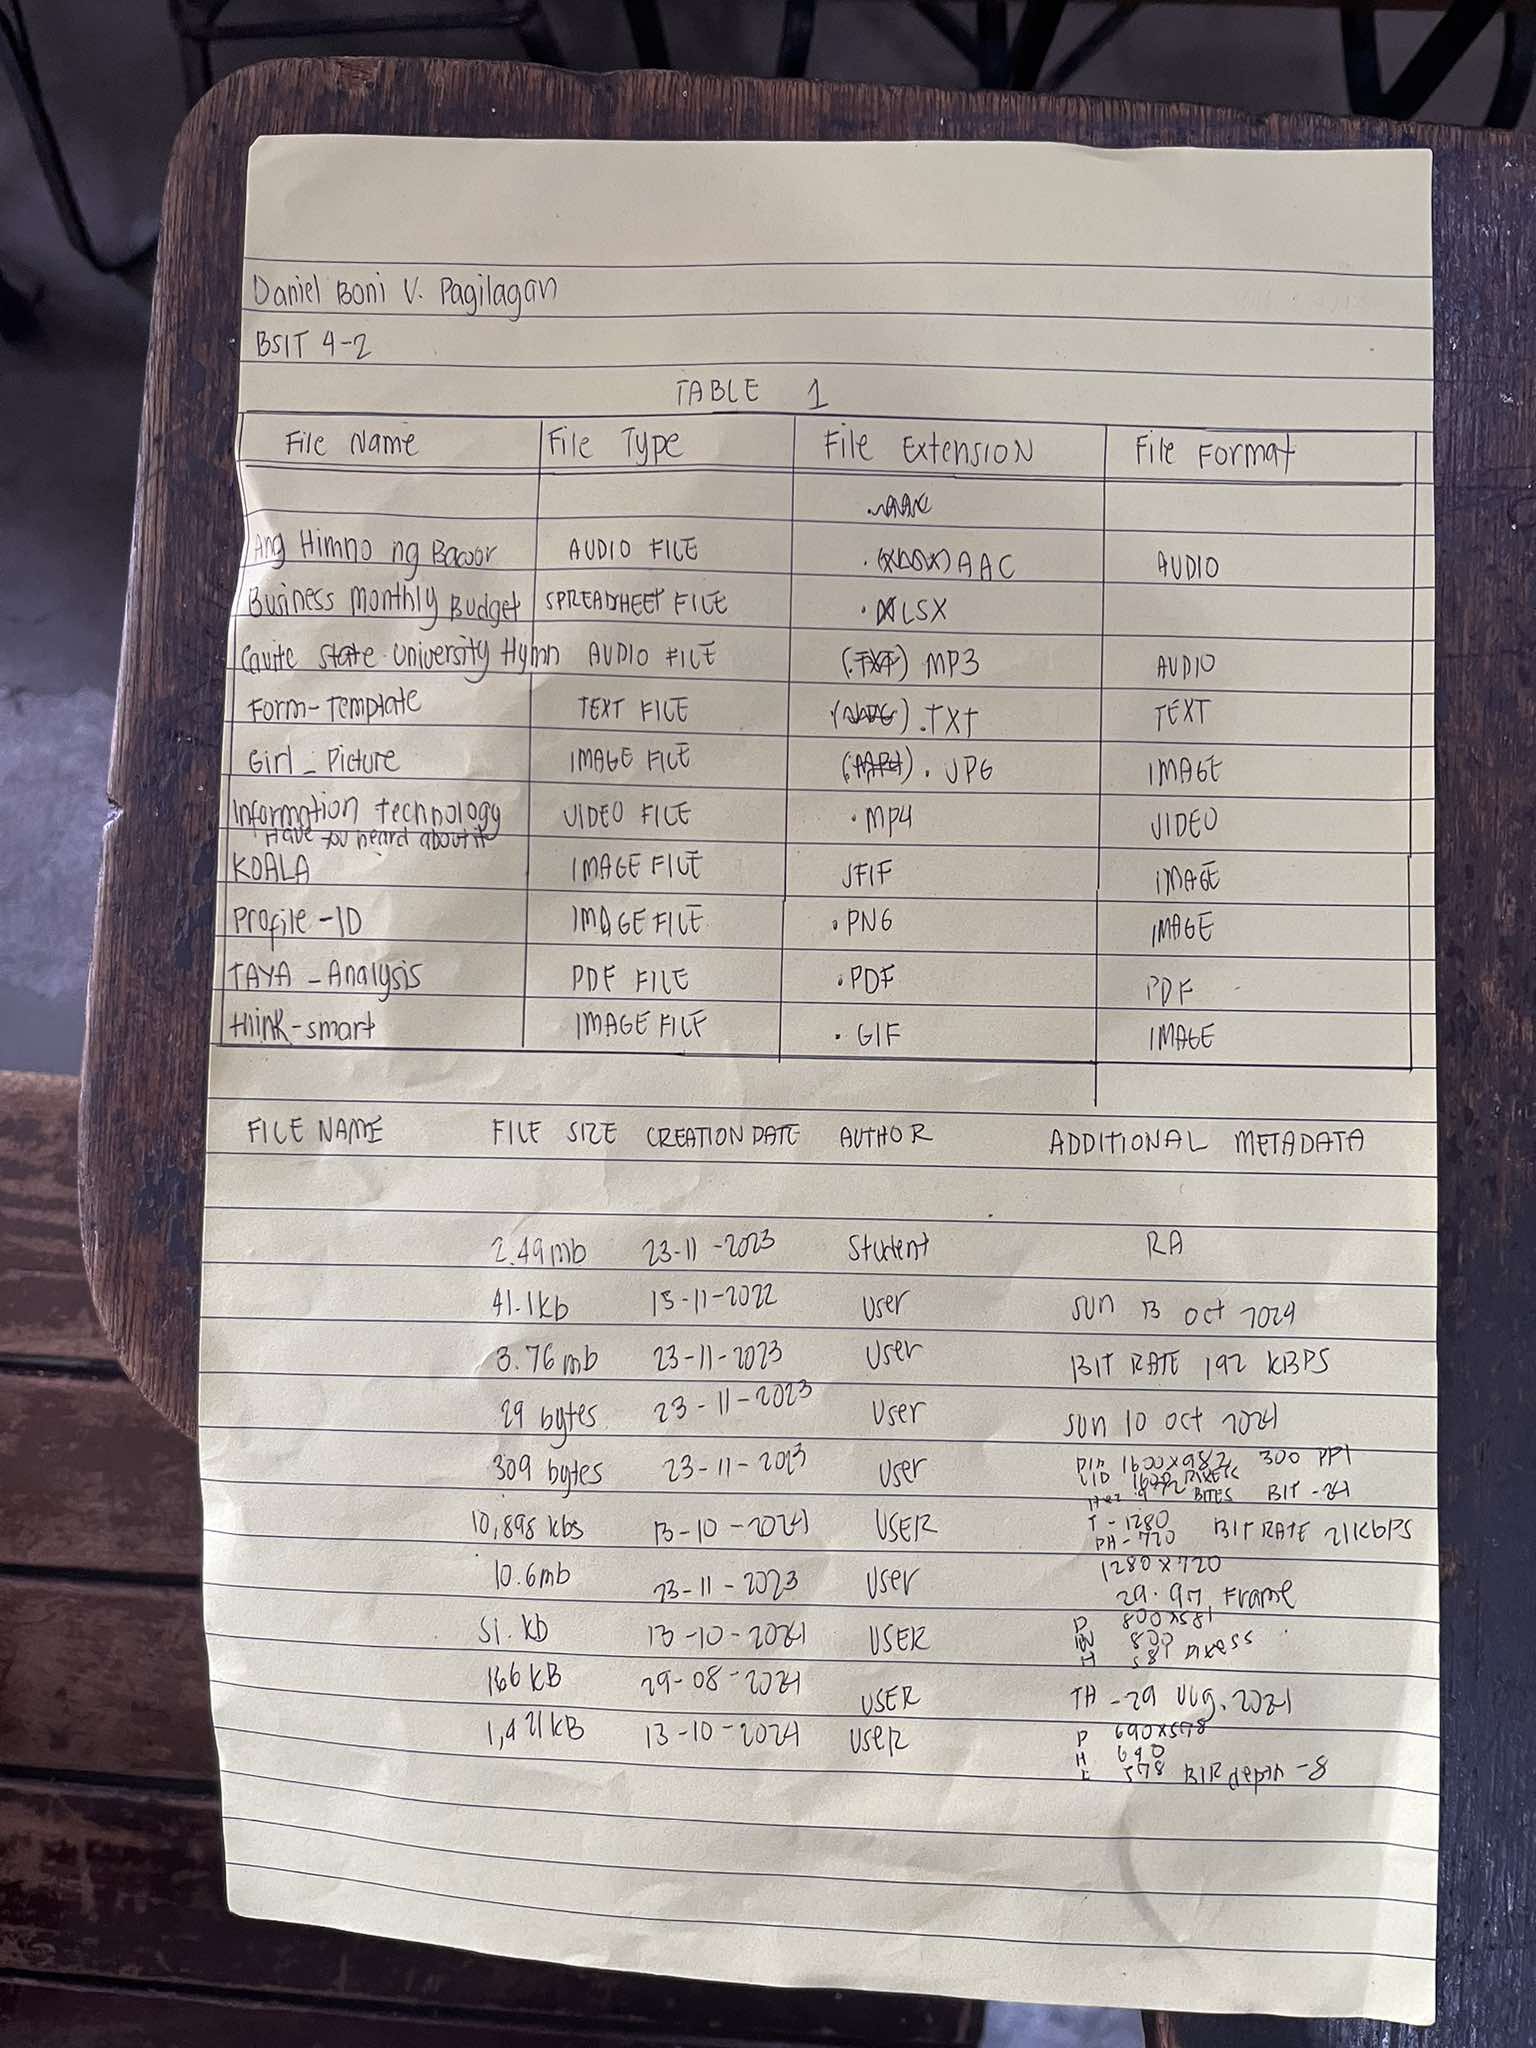 Daniel Boni V. Pagilagan
BSIT 4-2
TABLE 1
File Name File Type File Extension File Format
Ang Himno ng Bacoor AUDIO FILE . AAC AUDIO
Business Monthly Budget SPREADSHEET FILE .XLSX
Cavite State University Hymn AUDIO FILE (.TXT) MP3 AUDIO
Form-Template TEXT FILE .TXT TEXT
Girl_Picture IMAGE FILE (.MP4) .JPG IMAGE
Information technology VIDEO FILE .MP4 VIDEO
Have you heard about it
KOALA IMAGE FILE JFIF IMAGE
Profile-ID IMAGE FILE .PNG IMAGE
TAYA_Analysis PDF FILE .PDF PDF
think-smart IMAGE FILE .GIF IMAGE
FILE NAME FILE SIZE CREATION DATE AUTHOR ADDITIONAL METADATA
2.49mb 23-11-2023 Student RA
41.1kb 15-11-2022 User Sun 13 oct 2024
3.76mb 23-11-2023 User BIT RATE 192 KBPS
29 bytes 23-11-2023 User Sun 10 oct 2021
309 bytes 23-11-2023 User 1600x982 300 PPI
BIT -24
10,898 kbs 13-10-2024 USER T-1280
PH-720 BIT RATE 21KbPS
10.6mb 23-11-2023 User 1280x720
29.97 Frame
51. KB 13-10-2024 USER 800x581
800
581
166 KB 29-08-2024 USER TH -29 2024
1,421KB 13-10-2024 User P 690x578
H 690
578 depth -8